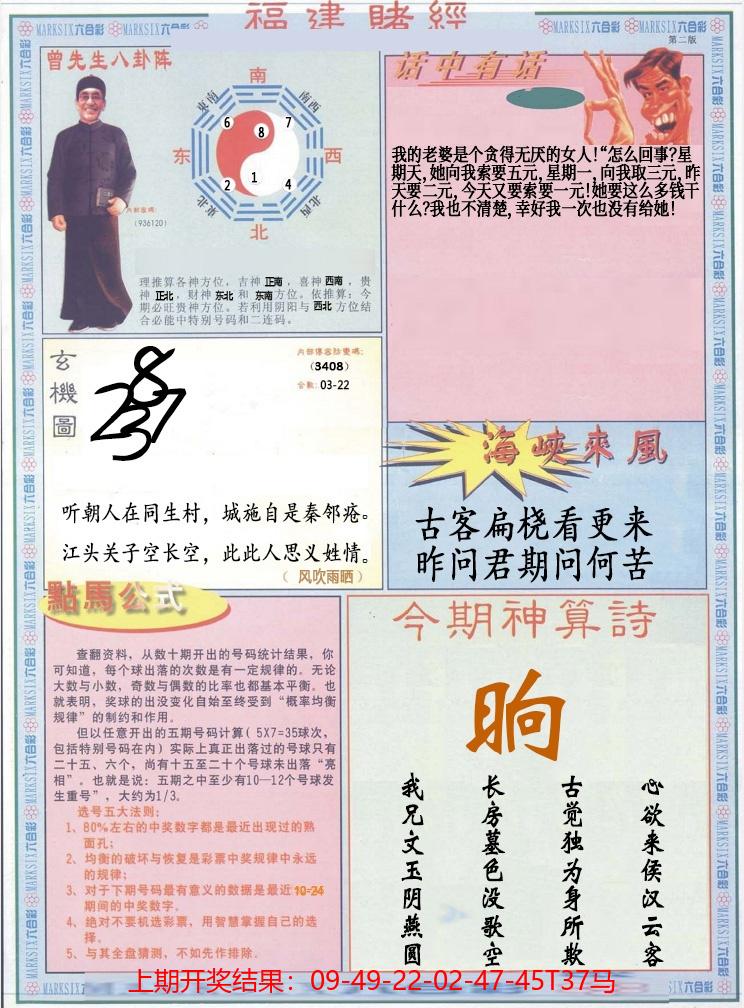 福建賭經
MARKSIX六合彩 MARKSIX六合彩 MARKSIX六合彩 MARKSIX六合彩
第二版
曾先生八卦阵
南
东南
南西
6
7
8
东
西
1
2
4
東北
北西
北
内部密碼:
(936120)
理推算各神方位，吉神 正南 ，喜神 西南 ，贵
神 正北 ，财神 东北 和 东南 方位。依推算：今
期必旺贵神方位。若利用阴阳与 西北 方位结
合必能中特别号码和二连码。
话中有话
我的老婆是个贪得无厌的女人!“怎么回事?星
期天,她向我索要五元,星期一,向我取三元,昨
天要二元,今天又要索要一元!她要这么多钱干
什么?我也不清楚,幸好我一次也没有给她!
玄機圖
内部傳容防雙碼:
(3408)
合数: 03-22
听朝人在同生村，城施自是秦邻疮。
江头关子空长空，此此人思义姓情。
（ 风吹雨晒 ）
海峽來風
古客扁桡看更来
昨问君期问何苦
點馬公式
查翻资料，从数十期开出的号码统计结果，你
可知道，每个球出落的次数是有一定规律的。无论
大数与小数，奇数与偶数的比率也都基本平衡。也
就表明，奖球的出没变化自始至终受到“概率均衡
规律”的制约和作用。
但以任意开出的五期号码计算( 5X7=35球次，
包括特别号码在内）实际上真正出落过的号码只有
二十五、六个，尚有十五至二十个号球未出落“亮
相”。也就是说：五期之中至少有10—12个号球发
生重号”，大约为1/3。
选号五大法则：
1、80%左右的中奖数字都是最近出现过的熟
面孔；
2、均衡的破坏与恢复是彩票中奖规律中永远
的规律；
3、对于下期号码最有意义的数据是最近10-24
期间的中奖数字。
4、绝对不要机选彩票，用智慧掌握自己的选
择。
5、与其全盘猜测，不如先作排除．
今期神算詩
晌
我兄文玉阴燕圆
长房墓色没歌空
古觉独为身所欺
心欲来侯汉云客
上期开奖结果：09-49-22-02-47-45T37马